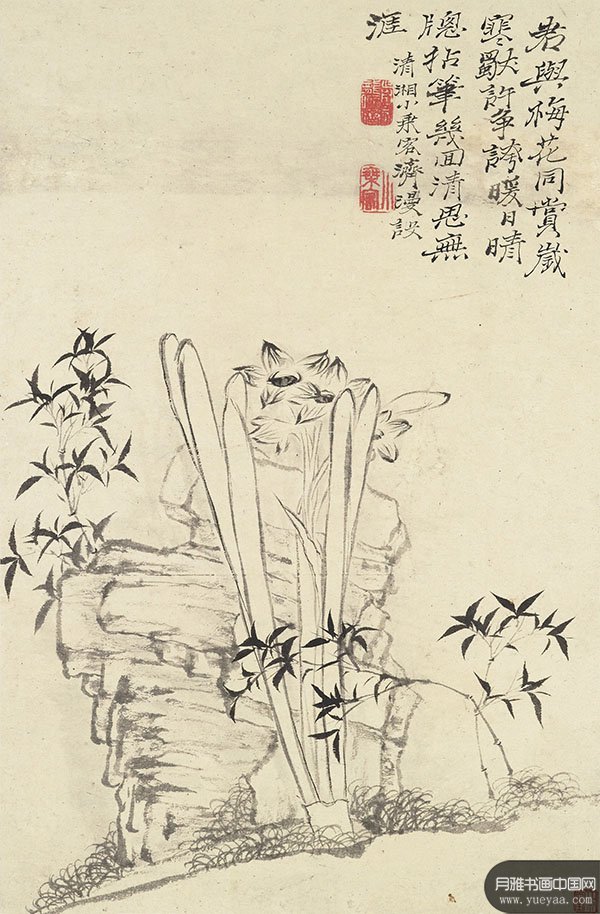 君與梅花同賞歲
寒獨許爭誇暖日晴
牕拈筆幾回清思無
涯
清湘小乘客濟漫設
小乘客
月雅书画中国网
www.yueyaa.com